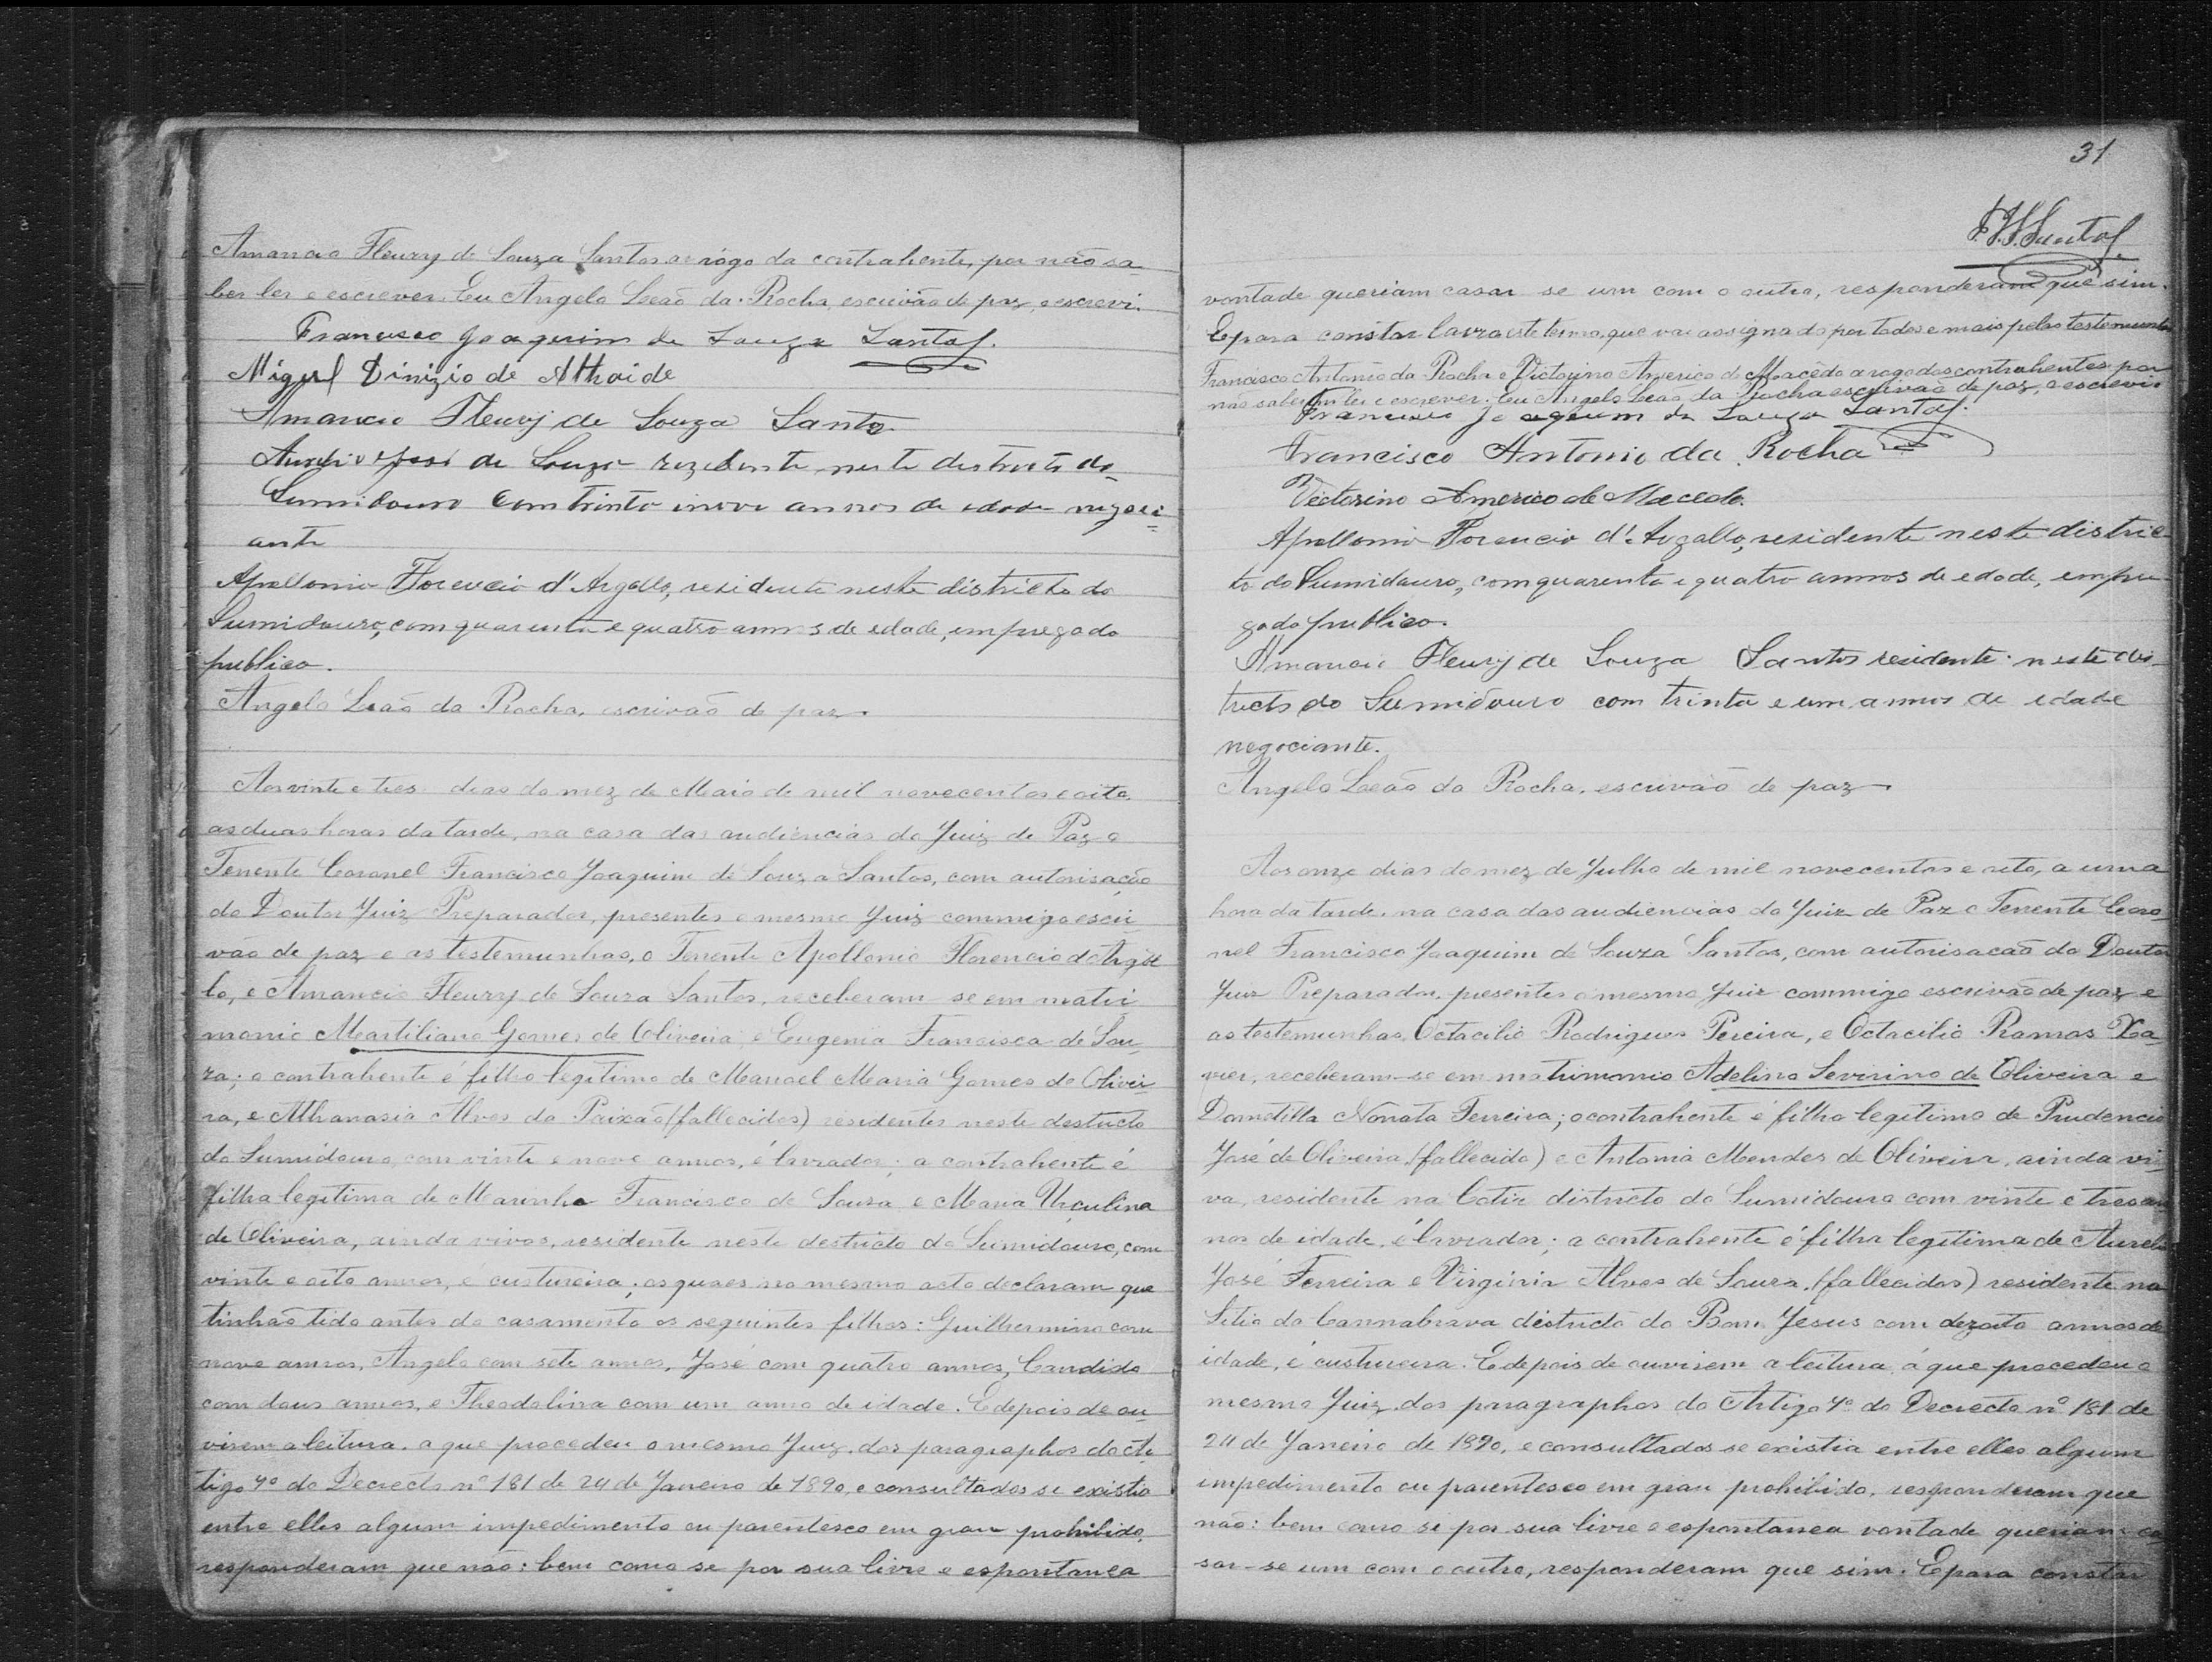 Amancio Fleury de Souza Santos a rógo da contrahente, por não sa-
ber ler e escrever. Eu Angelo Leão da Rocha, escrivão de paz, o escrevi.
Francisco Joaquim de Souza Santos.
Miguel Dinizio de Athaide
Amancio Fleury de Souza Santos
Aurelio José de Souza rezidente neste destricto do
Sumidouro com trinta inove annos de idade negoci-
ante
Apollonio Florencio d'Argollo, residente neste districto do
Sumidouro, com quarenta e quatro annos de edade, empregado
publico.
Angelo Leão da Rocha, escrivão de paz.
Aos vinte e tres dias do mez de Maio de mil novecentos e oito,
as duas horas da tarde, na casa das audiencias do Juiz de Paz o
Tenente Coronel Francisco Joaquim de Souza Santos, com autorisação
do Doutor Juiz Preparador, presentes o mesmo Juiz commigo escri-
vão de paz e as testemunhas, o Tenente Apollonio Florencio d'Argol-
lo, e Amancio Fleury de Souza Santos, receberam se em matri-
monio Martiliano Gomes de Oliveira, e Eugenia Francisca de Sou-
za; o contrahente é filho legitimo de Manoel Maria Gomes de Olivei-
ra, e Athanasia Alves da Paixão (fallecidos) residentes neste destricto
do Sumidouro, com vinte e nove annos, é lavrador; a contrahente é
filha legitima de Marinho Francisco de Souza e Maria Urculina
de Oliveira, ainda vivos, residente neste destricto do Sumidouro, com
vinte e oito annos, é custureira; os quaes no mesmo acto declaram que
tinhão tido antes do casamento os seguintes filhos: Guilhermino com
nove annos, Angelo com sete annos, José com quatro annos, Candido
com dous annos, e Theodolina com um anno de idade. E depois de ou-
virem a leitura, a que procedeu o mesmo Juiz, dos paragraphos do Ar-
tigo 7º do Decreto nº 181 de 24 de Janeiro de 1890, e consultados se existia
entre elles algum impedimento ou parentesco em grau prohibido,
responderam que não: bem como se por sua livre e espontanea
31
F.J.S. Santos
vontade queriam casar se um com o outro, responderam que sim.
E para constar lavra este termo, que vai assignado por todos e mais pelas testemunhas
Francisco Antonio da Rocha e Victorino Americo de Macêdo a rogo dos contrahentes por
não saberem ler e escrever. Eu Angelo Leão da Rocha escrivão de paz, o escrevi.
Francisco Joaquim de Souza Santos.
Francisco Antonio da Rocha
Victorino Americo de Macedo.
Apollonio Florencio d'Argollo, residente neste distric-
to do Sumidouro, com quarenta e quatro annos de edade, empre-
gado publico.
Amancio Fleury de Souza Santos residente neste dis-
tricto do Sumidouro com trinta e um annos de idade
negociante.
Angelo Leão da Rocha, escrivão de paz.
Aos onze dias do mez de Julho de mil novecentos e oito, a uma
hora da tarde, na casa das audiencias do Juiz de Paz o Tenente Coro-
nel Francisco Joaquim de Souza Santos, com autorisacão do Doutor
Juiz Preparador, presentes o mesmo Juiz commigo escrivão de paz e
as testemunhas, Octacilio Rodrigues Pereira, e Octacilio Ramos Xa-
vier, receberam-se em matrimonio Adelino Severino de Oliveira e
Dometilla Nonata Ferreira; o contrahente é filho legitimo de Prudencio
José de Oliveira, (fallecido) e Antonia Mendes de Oliveira, ainda vi-
va, residente na districto do Sumidouro com vinte e tres an-
nos de idade, é lavrador; a contrahente é filha legitima de Aurelio
José Ferreira e Virginia Alves de Souza, (fallecidos) residente no
Sitio da Cannabrava districto do Bom Jesus com dezoito annos de
idade, é custureira. E depois de ouvirem a leitura, á que procedeu o
mesmo Juiz, dos paragraphos do Artigo 7º do Decrecto nº 181 de
24 de Janeiro de 1890, e consultados se existia entre elles algum
impedimento ou parentesco em grau prohibido, responderam que
não: bem como se por sua livre e espontanea vontade queriam ca-
sar-se um com o outro, responderam que sim. E para constar